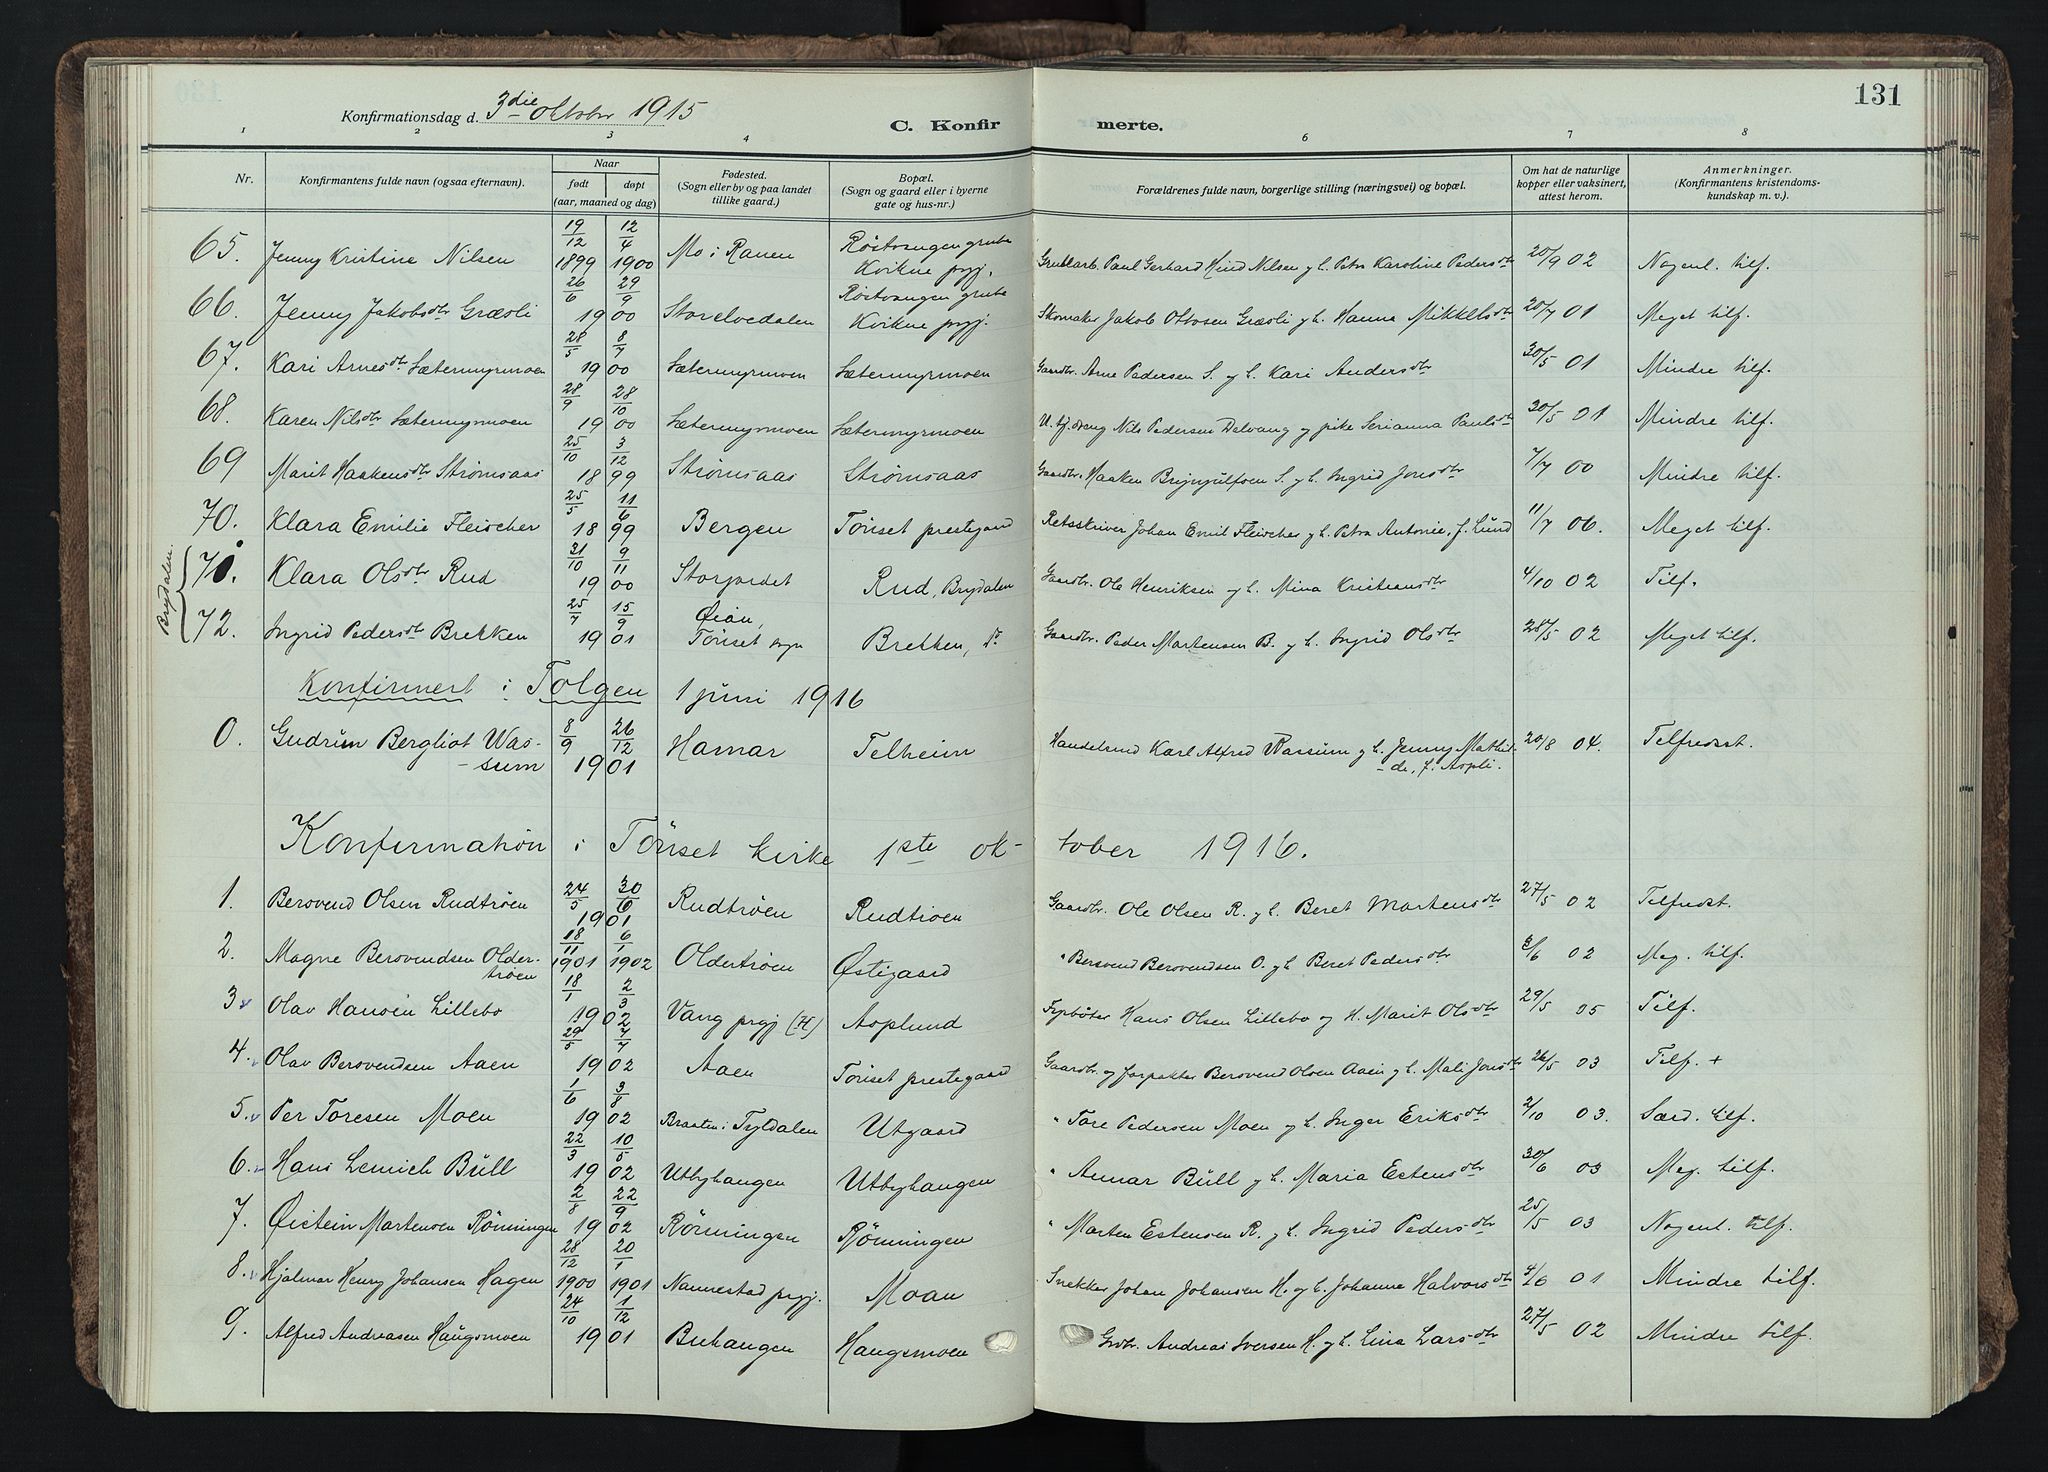 131
Konfirmationsdag d. 3die oktober 1915
C. Konfirmerte.
1 2 3 4 6 7 8
Nr. Konfirmantens fulde navn (ogsaa efternavn). Naar født døpt (aar, maaned og dag) Fødested. (Sogn eller by og paa landet tillike gaard.) Bopæl. (Sogn og gaard eller i byerne gate og hus-nr.) Forældrenes fulde navn, borgerlige stilling (næringsvei) og bopæl. Om hat de naturlige kopper eller vaksinert, attest herom. Anmerkninger. (Konfirmantens kristendomskundskap m. v.).
65. Jenny Kristine Nilsen 19/12 1899 12/4 1900 Mo i Ranen Røstvangen grube Kvikne prgj. Grubearb. Paul Gerhard Hind Nilsen g h. Petra Karoline Pedersdtr 20/9 02 Nogenl. tilf.
66. Jenny Jakobsdtr Græsli 26/6 29/9 1900 Storelvedalen Røstvangen grube Kvikne prgj. Skomaker Jakob Ottosen Græsli g h. Hanna Mikkelsdtr 20/7 01 Meget tilf.
67. Kari Arnesdtr Sætermyrmoen 28/5 8/7 1900 Sætermyrmoen Sætermyrmoen Gaardbr. Arne Pedersen S. g h. Kari Andersdtr 30/5 01 Mindre tilf.
68. Karen Nilsdtr Sætermyrmoen 28/9 28/10 1900 Sætermyrmoen Sætermyrmoen U. tj. dreng Nils Pedersen Dalvang og pike Serianna Paulsdtr 30/5 01 Mindre tilf.
69 Marit Haakensdtr Strømsaas 25/10 3/12 1899 Strømsaas Strømsaas Gaardbr. Haaken Brynjulfsen S. g h. Ingrid Jonsdtr 7/7 00 Mindre tilf.
70. Klara Emilie Fleischer 25/5 11/6 1899 Bergen Tønset prestegaard Retsskriver Johan Emil Fleischer g h. Petra Antonie, f. Lund 11/7 06. Meget tilf.
Brydalen.
71. Klara Olsdtr Rud 31/10 9/11 1900 Storjordet Rud, Brydalen Gaardbr. Ole Henriksen g h. Mina Kristiansdtr 4/10 02 Tilf.
72. Ingrid Pedersdtr Brekken 25/7 15/9 1901 Øian, Tønset sogn Brekken, do Gaardbr. Peder Martensen B. g h. Ingrid Olsdtr 28/5 02 Meget tilf.
Konfirmert i Tolgen 1 juni 1916
0. Gudrun Bergliot Wassum 8/9 26/12 1901 Hamar Telheim Handelsmd Karl Alfred Wassum g h. Jenny Mathilde, f. Aspli. 20/8 04. Tilfredsst.
Konfirmation i Tønset kirke 1ste oktober 1916.
1. Bersvend Olsen Rudtrøen 24/5 30/6 1901 Rudtrøen Rudtrøen Gaardbr. Ole Olsen R. g h. Beret Martensdtr 27/5 02 Tilfredst.
2. Magne Bersvendsen Oldertrøen 18/11 1901 6/1 1902 Oldertrøen Østigaard " Bersvend Bersvendsen O. g h Beret Pedersdtr 3/6 02 Meg. tilf.
3 Olav Hansen Lillebo 18/1 2/3 1902 Vang prgj (H) Asplund Hans Olsen Lillebo og H. Marit Olsdtr 29/5 05 Tilf.
4. Olav Bersvendsen Aaen 29/5 7/7 1902 Aaen Tønset prestegaard Gaardbr. og forpakter Bersvend Olsen Aaen g h. Mali Jonsdtr 26/5 03 Tilf. +
5. Per Toresen Moen 1/6 3/8 1902 Braaten i Tyldalen Utgaard " Tore Pedersen Moen g h. Inger Eriksdtr 2/10 03. Særd. tilf.
6. Hans Lemich Büll 22/3 10/5 1902 Utbyhaugen Utbyhaugen " Annar Büll g h. Maria Estensdtr 30/6 03 Meg. tilf.
7. Øistein Martensen Rønningen 2/8 22/9 1902 Rønningen Rønningen " Marten Estensen R. g h. Ingrid Pedersdtr 25/5 03 Nogenl. tilf.
8. Hjalmar Henry Johansen Hagen 28/12 1900 20/1 1901 Nannestad prgj. Moan Snekker Johan Johansen H. g h. Johanne Halvorsdtr 4/6 01 Mindre tilf.
9. Alfred Andreasen Haugsmoen 24/10 1/12 1901 Buhaugen Haugsmoen Grdbr. Andreas Iversen H. g h. Lina Larsdtr 27/5 02 Mindre tilf.